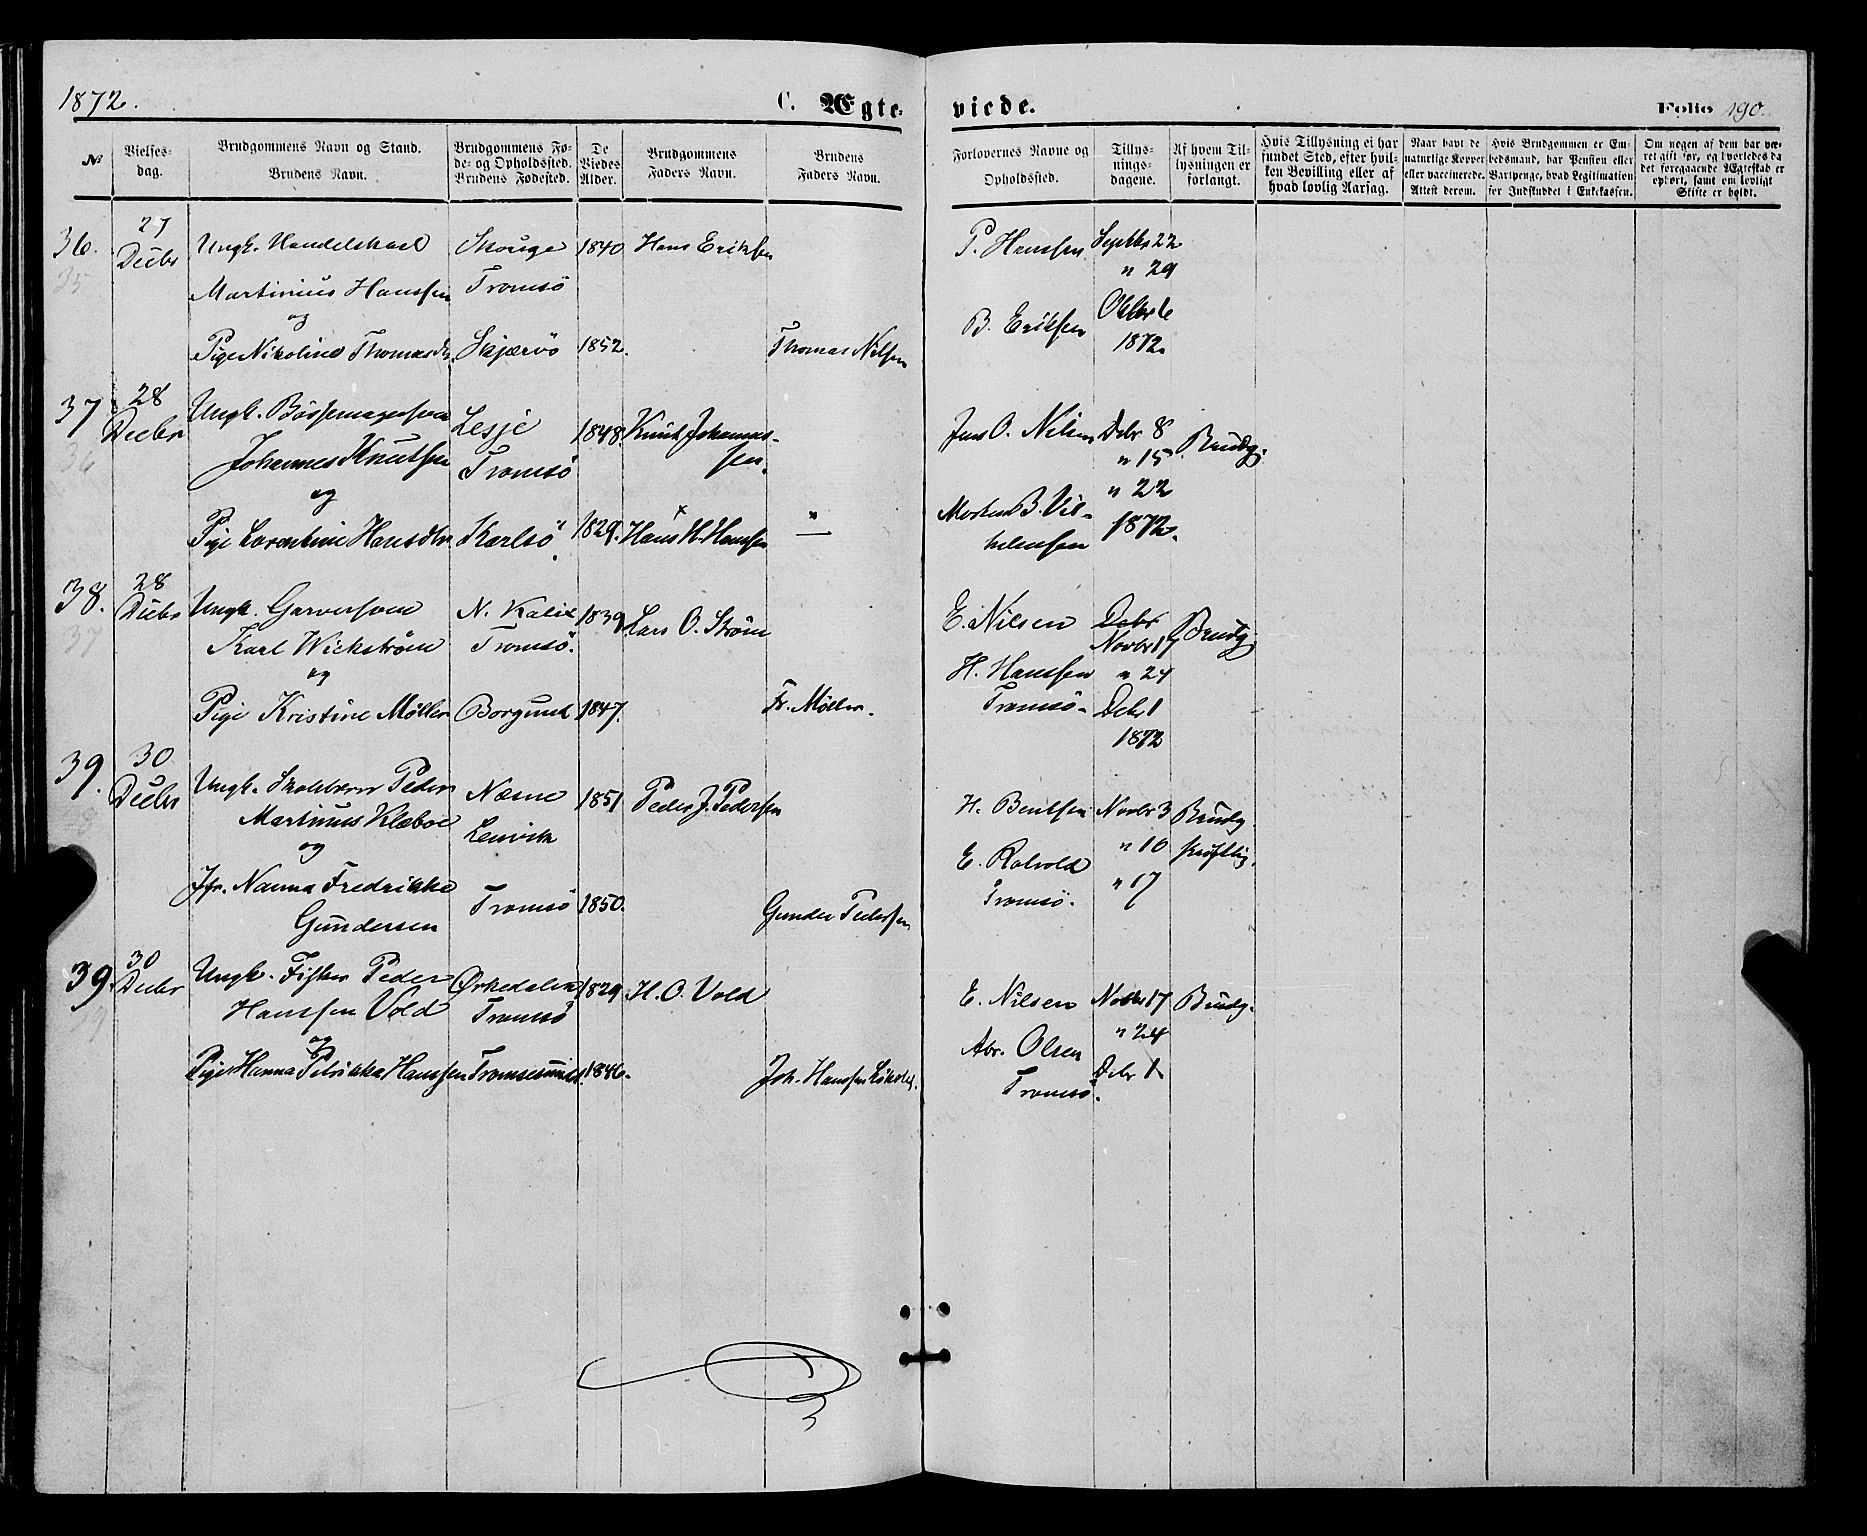 1872.
C. Ægte-
viede.
Folio 190.
№
Vielses-
dag.
Brudgommens Navn og Stand.
Brudens Navn.
Brudgommens Fø-
de- og Opholdssted.
Brudens Fødested.
De
Viedes
Alder.
Brudgommens
Faders Navn.
Brudens
Faders Navn.
Forlovernes Navne og
Opholdssted.
Tillys-
nings-
dagene.
Af hvem Til-
lysningen er
forlangt.
Hvis Tillysning ei har
fundet Sted, efter hvil-
ken Bevilling eller af
hvad lovlig Aarsag.
Naar havt de
naturlige Kopper
eller vaccinerede.
Attest derom.
Hvis Brudgommen er Em-
bedsmand, har Pension eller
Vartpenge, hvad Legitimation
for Indskuddet i Enkekassen.
Om nogen af dem har væ-
ret gift før, og hvorledes da
det foregaaende Ægteskab er
ophørt, samt om lovligt
Skifte er holdt.
36.
35
27
Decbr
Ungk. Handelskarl
Martinius Hanssen
og
Pige Nikoline Thomasdtr.
Tromsö
Skjærvö
1840
1852.
Hans Eriksen
Thomas Nilsen
P. Hanssen
B. Eriksen
Septbr 22
" 29
Oktbr 6
1872.
37
36
28
Decbr
Ungk. Bössemagersvend
Johannes Knutsen
og
Pige Lorentine Hansdtr.
Lesje
Tromsö
Karlsö
1848.
1829.
Knut Johannes-
sen.
Hans H. Hanssen
"
Jens O. Nilsen
Morten B. Vil-
helmsen
Debr 8
" 15
" 22
1872.
Brudg.
38.
37
28
Decbr
Ungk. Garversvend
Karl Wickström
og
Pige Kristine Möller
N. Kalix
Tromsö.
Borgund
1839
1847.
Lars O. Ström
Fr. Möller.
E. Nilsen
H. Hanssen
Tromsö.
Debr
Novbr 17
" 24
Debr 1
1872
Brudg.
39.
30
Decbr
Ungk. Skolelærer Peder
Martinus Klæboe
og
Jfr. Nanna Fredrikke
Gundersen
Næsne
Lenvik
Tromsö
1851
1850.
Peder J. Pedersen
Gunder Pedersen
H. Bentsen
E. Rolvold
Tromsö.
Novbr 3
" 10
" 17
Brudg.
skriftlig.
39.
30
Decbr
Ungk. Fisker Peder
Hanssen Vold
og
Pige Hanna Petrikka Hanssen
Ørkedalen
Tromsö
Tromsesundet
1829
1846.
H. O. Vold
Joh. Hanssen
E. Nilsen
Abr. Olsen
Tromsö.
Novbr 17
" 24
Debr 1
Brudg.